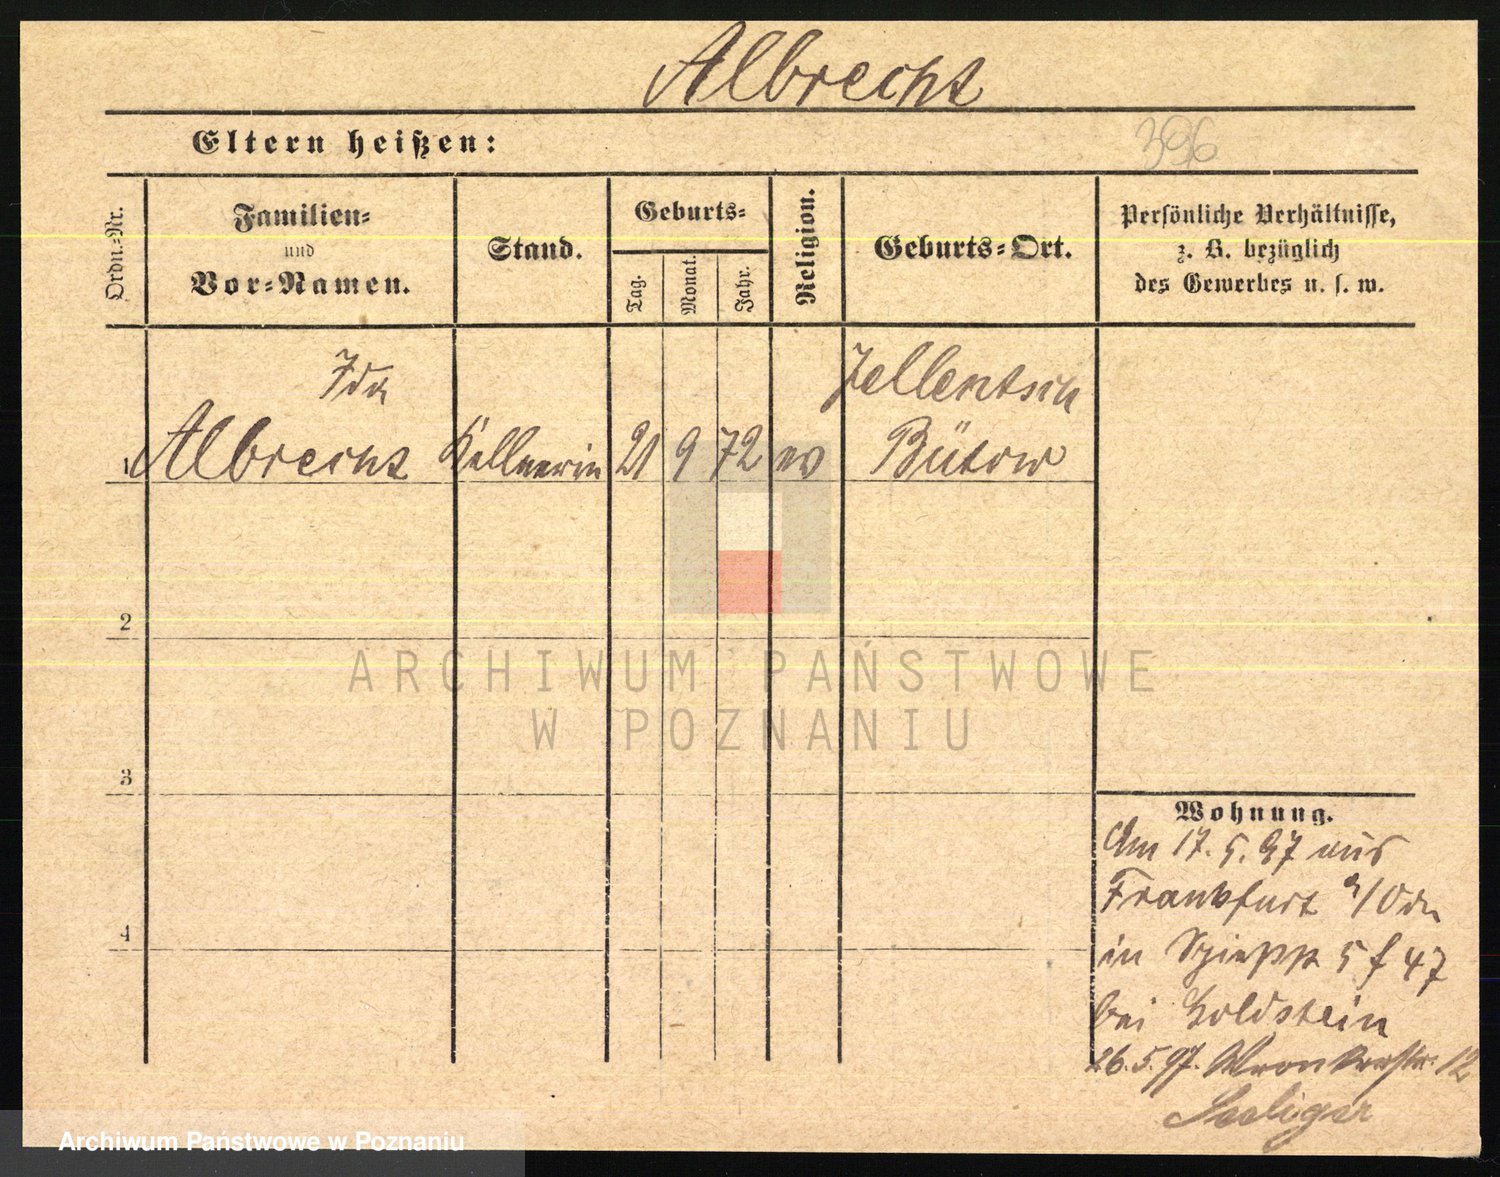 Albrecht
Eltern heißen:
396
Ordn.=Nr.
Familien=
und
Vor=Namen.
Stand.
Geburts=
Tag.
Monat.
Jahr.
Religion.
Geburts=Ort.
Persönliche Verhältnisse,
z. B. bezüglich
des Gewerbes u. s. w.
Ida
Jellentsch
1 Albrecht Kellnerin 21 9 72 ev Bütow
2
3
4
Wohnung.
Am 17. 5. 97 aus
Frankfurt a/Oder
in 5 f 47
bei Goldstein
26.5.97. Wronkerstr. 12
Seeliger
ARCHIWUM PAŃSTWOWE
W POZNANIU
Archiwum Państwowe w Poznaniu